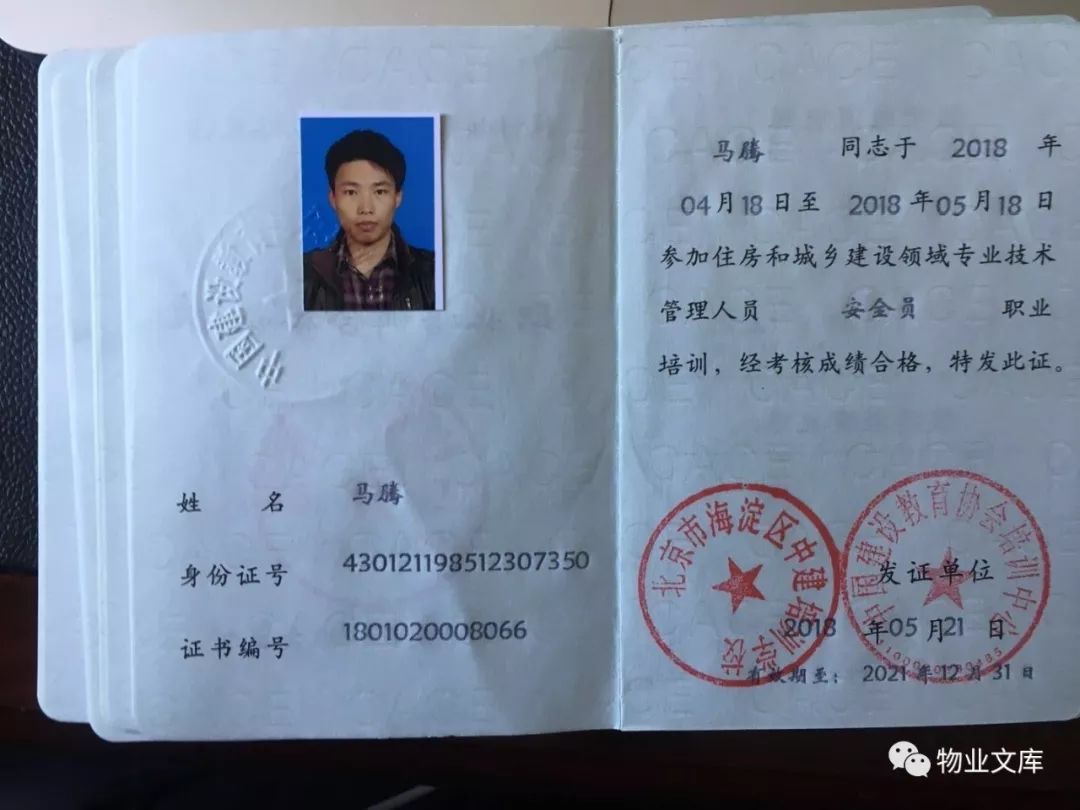 中国建设教
姓 名 马腾
身份证号 430121198512307350
证书编号 1801020008066
马腾 同志于 2018 年
04月18日至 2018年05月18日
参加住房和城乡建设领域专业技术
管理人员 安全员 职业
培训，经考核成绩合格，特发此证。
北京市海淀区中建培训学校
中国建设教育协会培训中心
发证单位
2018 年05月21日
有效期至：2021年12月31日
物业文库